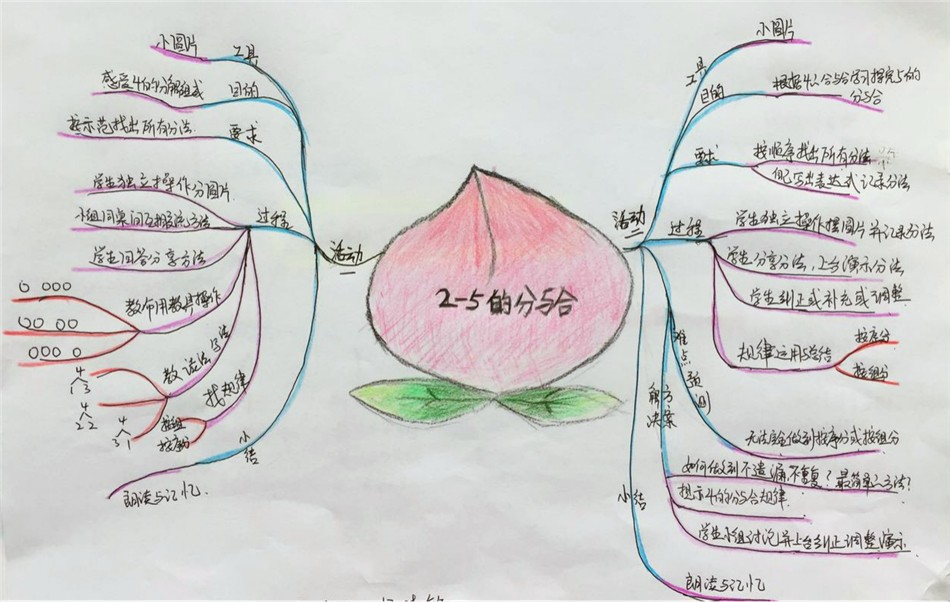 2-5的分与合
活动一
工具
小图片
目的
感受4的分解组成
要求
按示范找出所有分法
过程
学生独立操作分图片
小组同桌间互相交流方法
学生回答分享方法
教师用教具操作
O OOO
OO OO
OOO O
教读法写法
4
1 3
4
2 2
4
3 1
找规律
按组
按序分
小结
朗读与记忆
活动二
工具
小图片
目的
根据4的分与合来探究5的
分与合
要求
按顺序找出所有分法
能写出表达式记录分法
过程
学生独立操作摆图片并记录分法
学生分享分法，上台演示分法
学生纠正或补充或调整
规律运用与总结
按序分
按组分
难点预设
无法完全做到按序分或按组分
解决方案
如何做到不遗漏不重复？最简单的方法？
提示4的分与合规律
学生小组讨论并上台纠正调整演示
小结
朗读与记忆